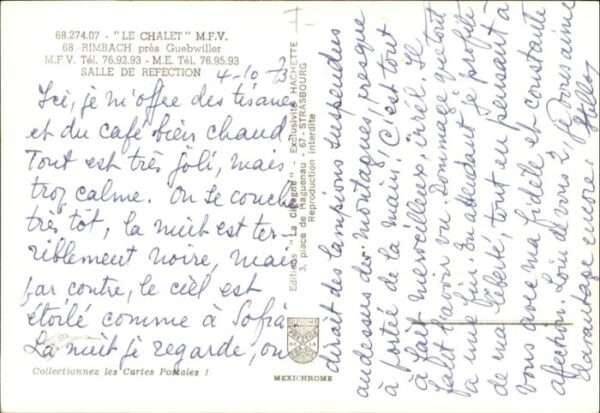 68.274.07 - "LE CHALET" M.F.V.
68 RIMBACH près Guebwiller
M.F.V. Tél. 76.92.93 - M.E. Tél. 76.95.93
SALLE DE REFECTION
4-10-73
Ici, je m'offre des tisanes
et du café bien chaud
Tout est très joli, mais
trop calme. On se couche
très tôt, la nuit est ter-
riblement noire, mais
par contre, le ciel est
étoilé comme à Sofia
La nuit je regarde, on
Collectionnez les Cartes Postales !
Editions "La Cigogne" - Exclusivité HACHETTE
3, place de Haguenau - 67 - STRASBOURG
Reproduction interdite
MEXICHROME
dirait des lampions suspendus
au dessus des montagnes, presque
à portée de la main. C'est tout
à fait merveilleux, irréel. Il
faut l'avoir vu. Dommage que tout
a une fin. En attendant je profite
de ma liberté, tout en pensant à
vous avec ma fidèle et constante
affection. Loin de vous 2, je vous aime
davantage encore